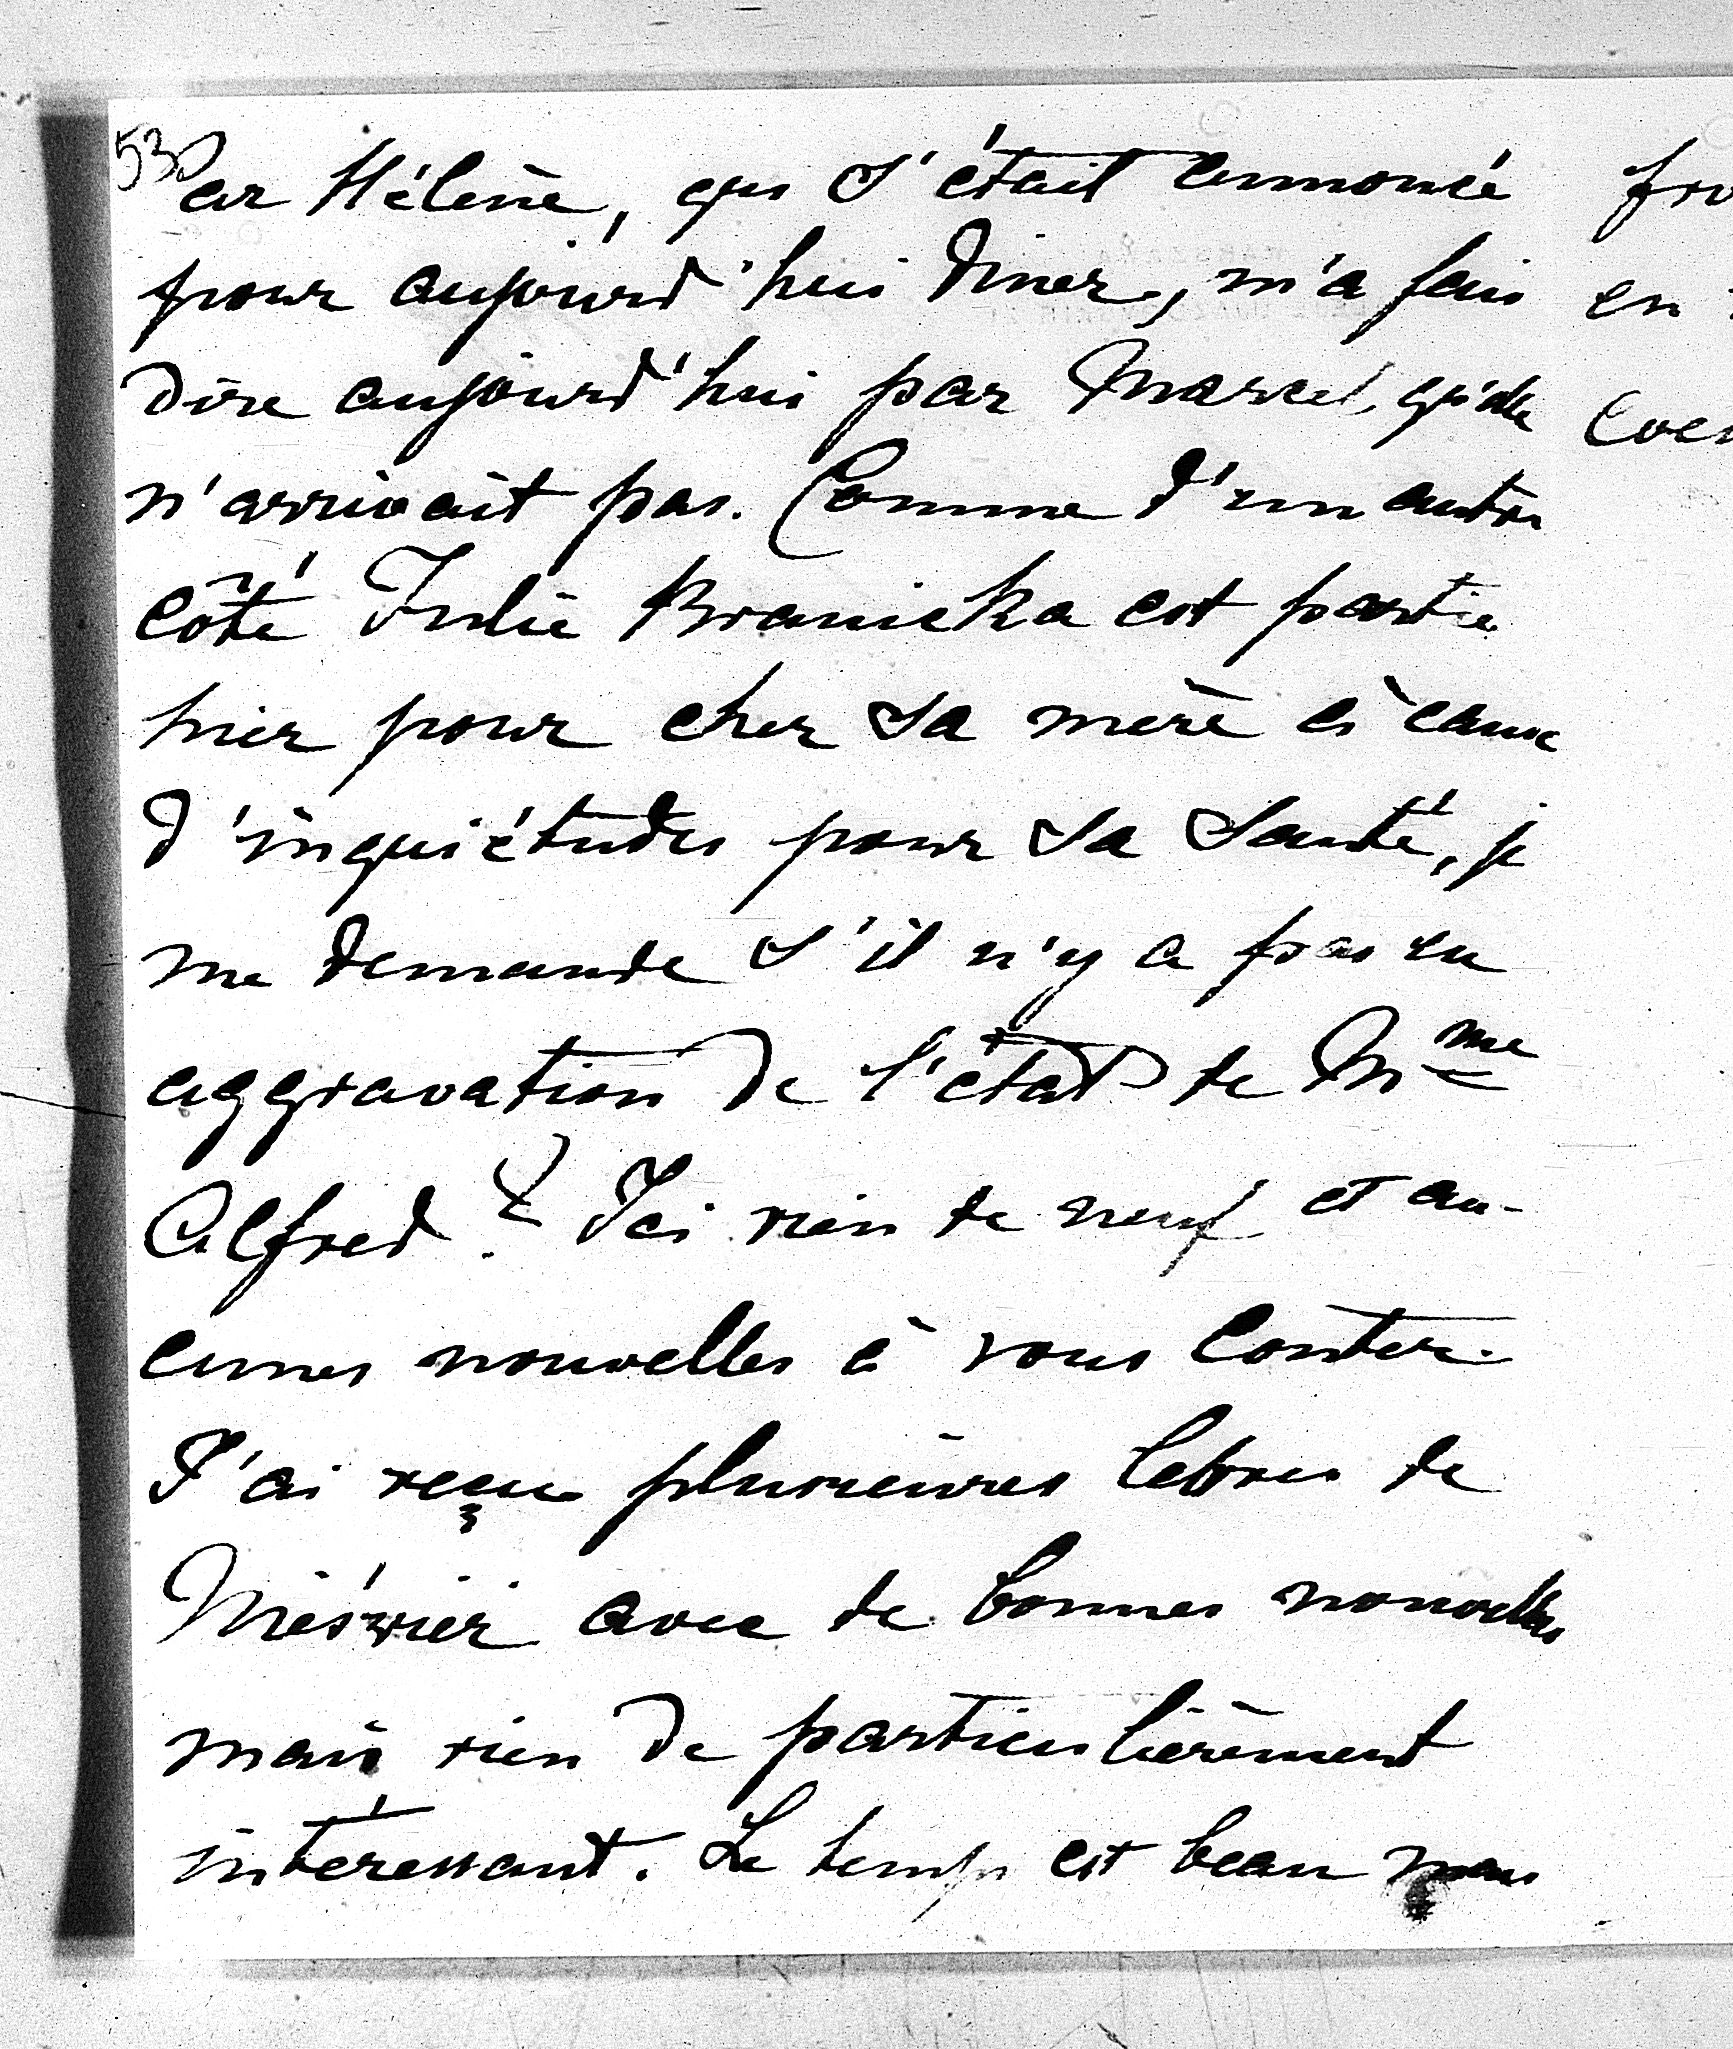 53
car Hélène, qui s'était annoncée
pour aujourd'hui diner, m'a fais
dire aujourd'hui par Marcel, qu'elle
n'arrivait pas. Comme d'un autre
côté Julie Branicka est partie
hier pour cher sa mère à cause
d'inquiétudes pour sa santé, je
me demande s'il n'y a pas eu
aggravation de l'état de Mme
Alfred? Ici rien de neuf et au-
cunes nouvelles à vous conter.
J'ai reçu plusieures lettres de
avec de bonnes nouvelles
mais rien de particulièrement
intéressant. Le temps est beau mais
en